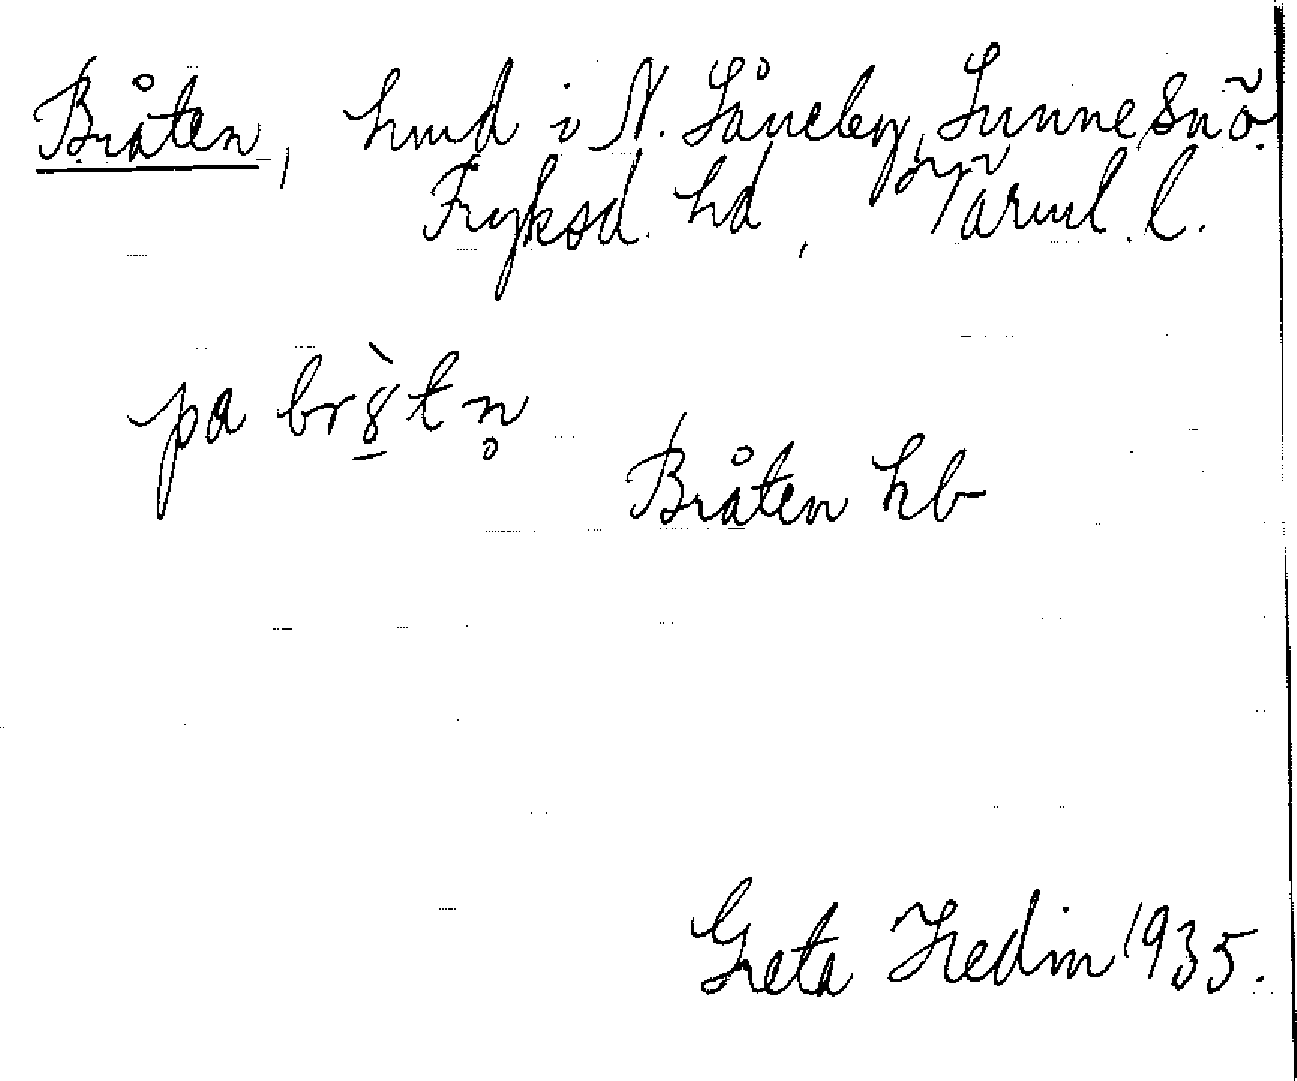 Bråten, hmd i N. Låneby, Sunne sn ö.
Fryksd. hd, Värml. l.
pa br8̲̀tn̥
Bråten hb
Greta Hedin 1935.